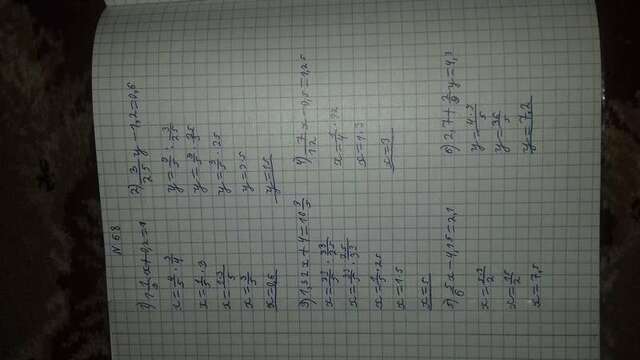 N 68
1) 1 1/3 x + 0,2 = 1
x = 4/5 · 3/4
x = 1/5 · 3
x = 1·3/5
x = 3/5
x = 0,6
2) 3/25 y - 1,2 = 0,6
y = 9/5 : 3/25
y = 9/5 · 25/3
y = 3/5 · 25
y = 3·5
y = 15
3) 1,32x + 4 = 10 3/5
x = 33/5 : 33/25
x = 33/5 · 25/33
x = 1/5 · 25
x = 1·5
x = 5
4) 7/12 x - 0,5 = 1,25
x = 1/4 · 12
x = 1·3
x = 3
5) 5/6 x - 4,15 = 2,1
x = 5·3/2
x = 15/2
x = 7,5
6) 2,7 + 2/9 y = 4,3
y = 4·9/5
y = 36/5
y = 7,2